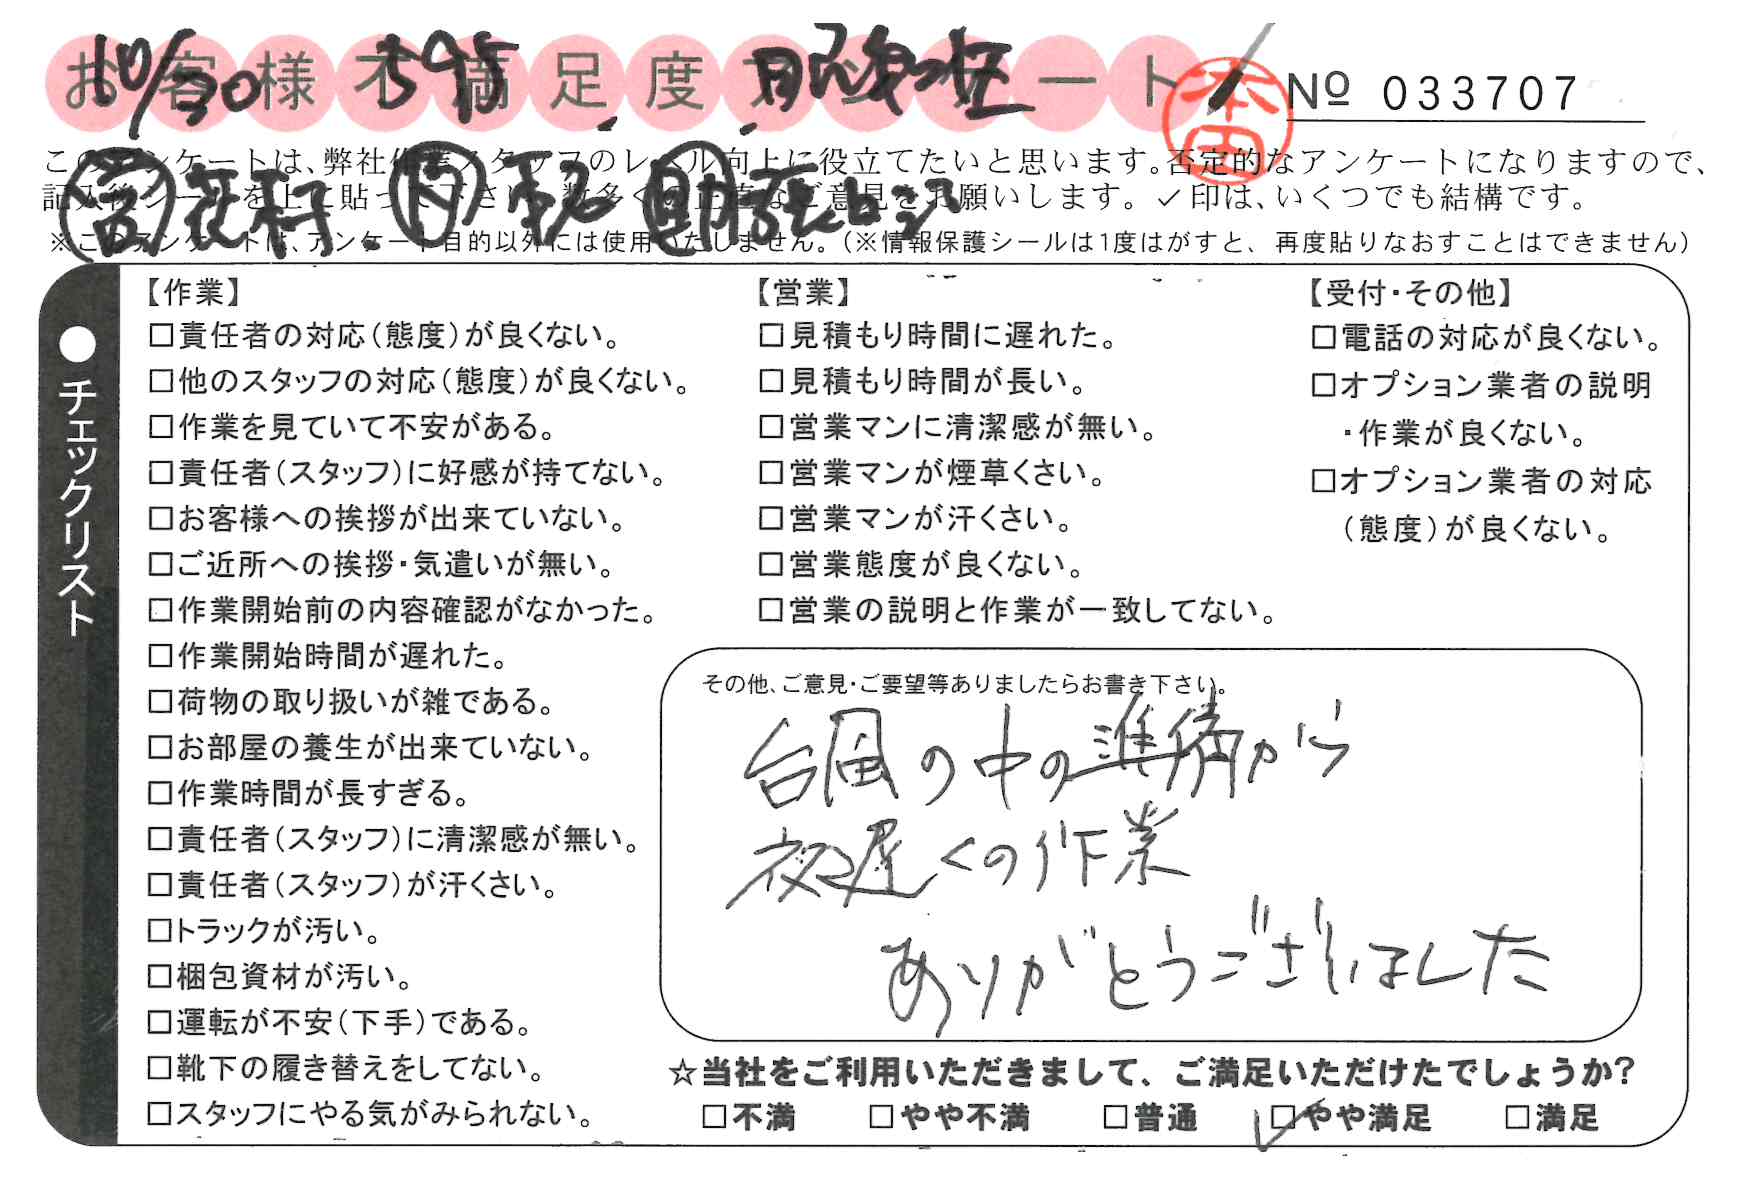 お客様不満足度アンケート
10/30 595
本田
№ 033707
このアンケートは、弊社作業スタッフのレベル向上に役立てたいと思います。否定的なアンケートになりますので、
記入後シールを上に貼って下さい。数多くの正直なご意見をお願いします。✓印は、いくつでも結構です。
※このアンケートは、アンケート目的以外には使用いたしません。(※情報保護シールは1度はがすと、再度貼りなおすことはできません)
●チェックリスト
【作業】
□責任者の対応(態度)が良くない。
□他のスタッフの対応(態度)が良くない。
□作業を見ていて不安がある。
□責任者(スタッフ)に好感が持てない。
□お客様への挨拶が出来ていない。
□ご近所への挨拶・気遣いが無い。
□作業開始前の内容確認がなかった。
□作業開始時間が遅れた。
□荷物の取り扱いが雑である。
□お部屋の養生が出来ていない。
□作業時間が長すぎる。
□責任者(スタッフ)に清潔感が無い。
□責任者(スタッフ)が汗くさい。
□トラックが汚い。
□梱包資材が汚い。
□運転が不安(下手)である。
□靴下の履き替えをしてない。
□スタッフにやる気がみられない。
【営業】
□見積もり時間に遅れた。
□見積もり時間が長い。
□営業マンに清潔感が無い。
□営業マンが煙草くさい。
□営業マンが汗くさい。
□営業態度が良くない。
□営業の説明と作業が一致してない。
【受付・その他】
□電話の対応が良くない。
□オプション業者の説明
・作業が良くない。
□オプション業者の対応
(態度)が良くない。
その他、ご意見・ご要望等ありましたらお書き下さい。
台風の中の準備から
夜遅くの作業
ありがとうございました
☆当社をご利用いただきまして、ご満足いただけたでしょうか?
□不満 □やや不満 □普通 ☑やや満足 □満足